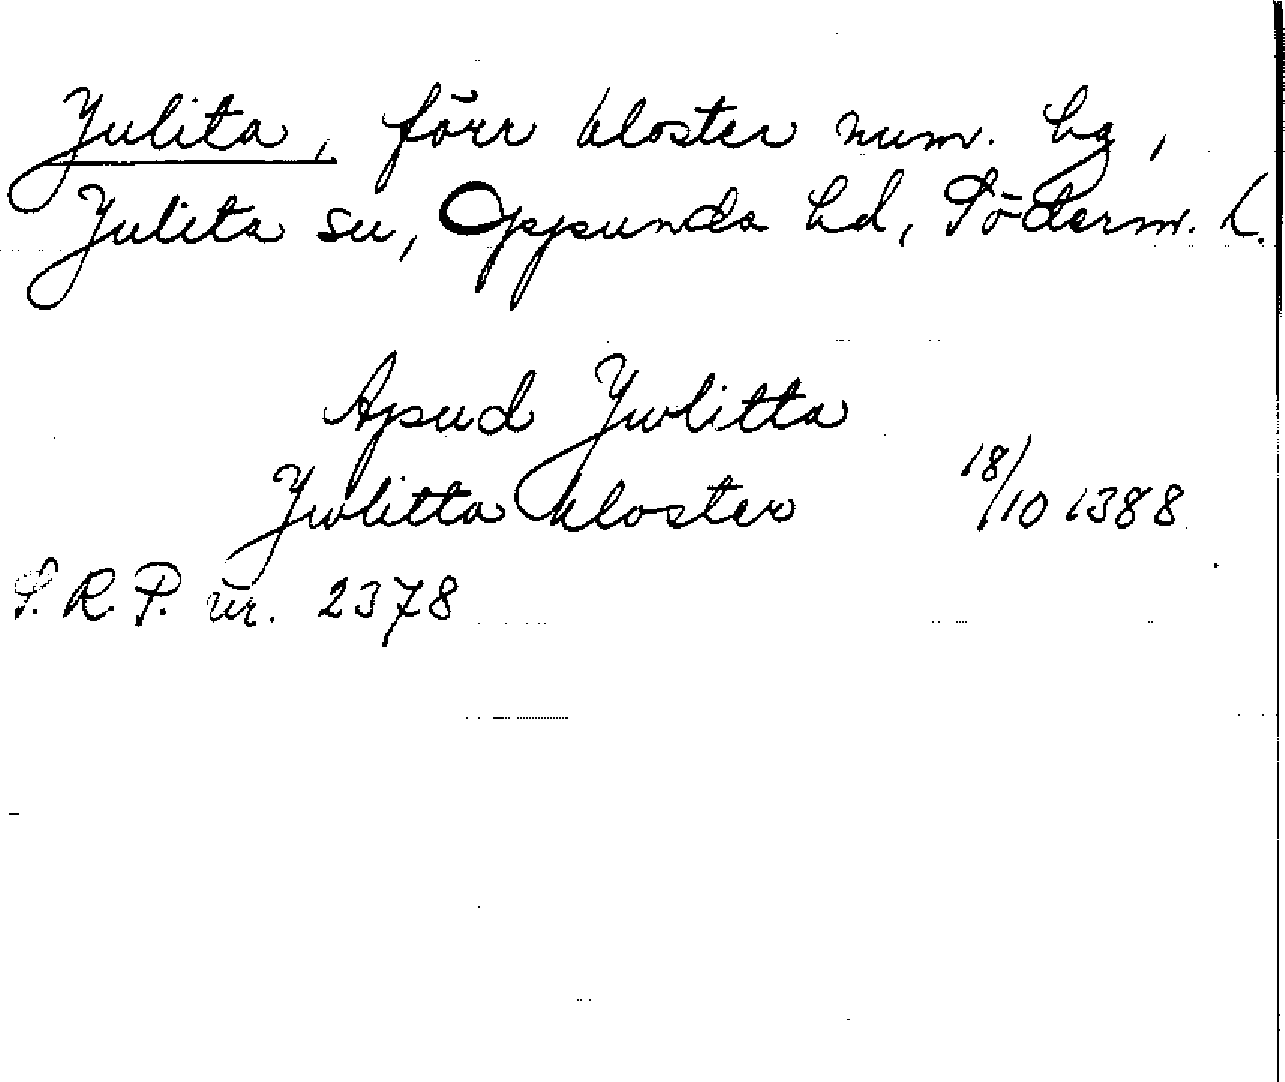 Julita, förr kloster num. hg,
Julita sn, Oppunda hd, Söderm. l.
Apud Jwlitta
Jwlitta kloster 18/10 1388
S.R.P. nr. 2378